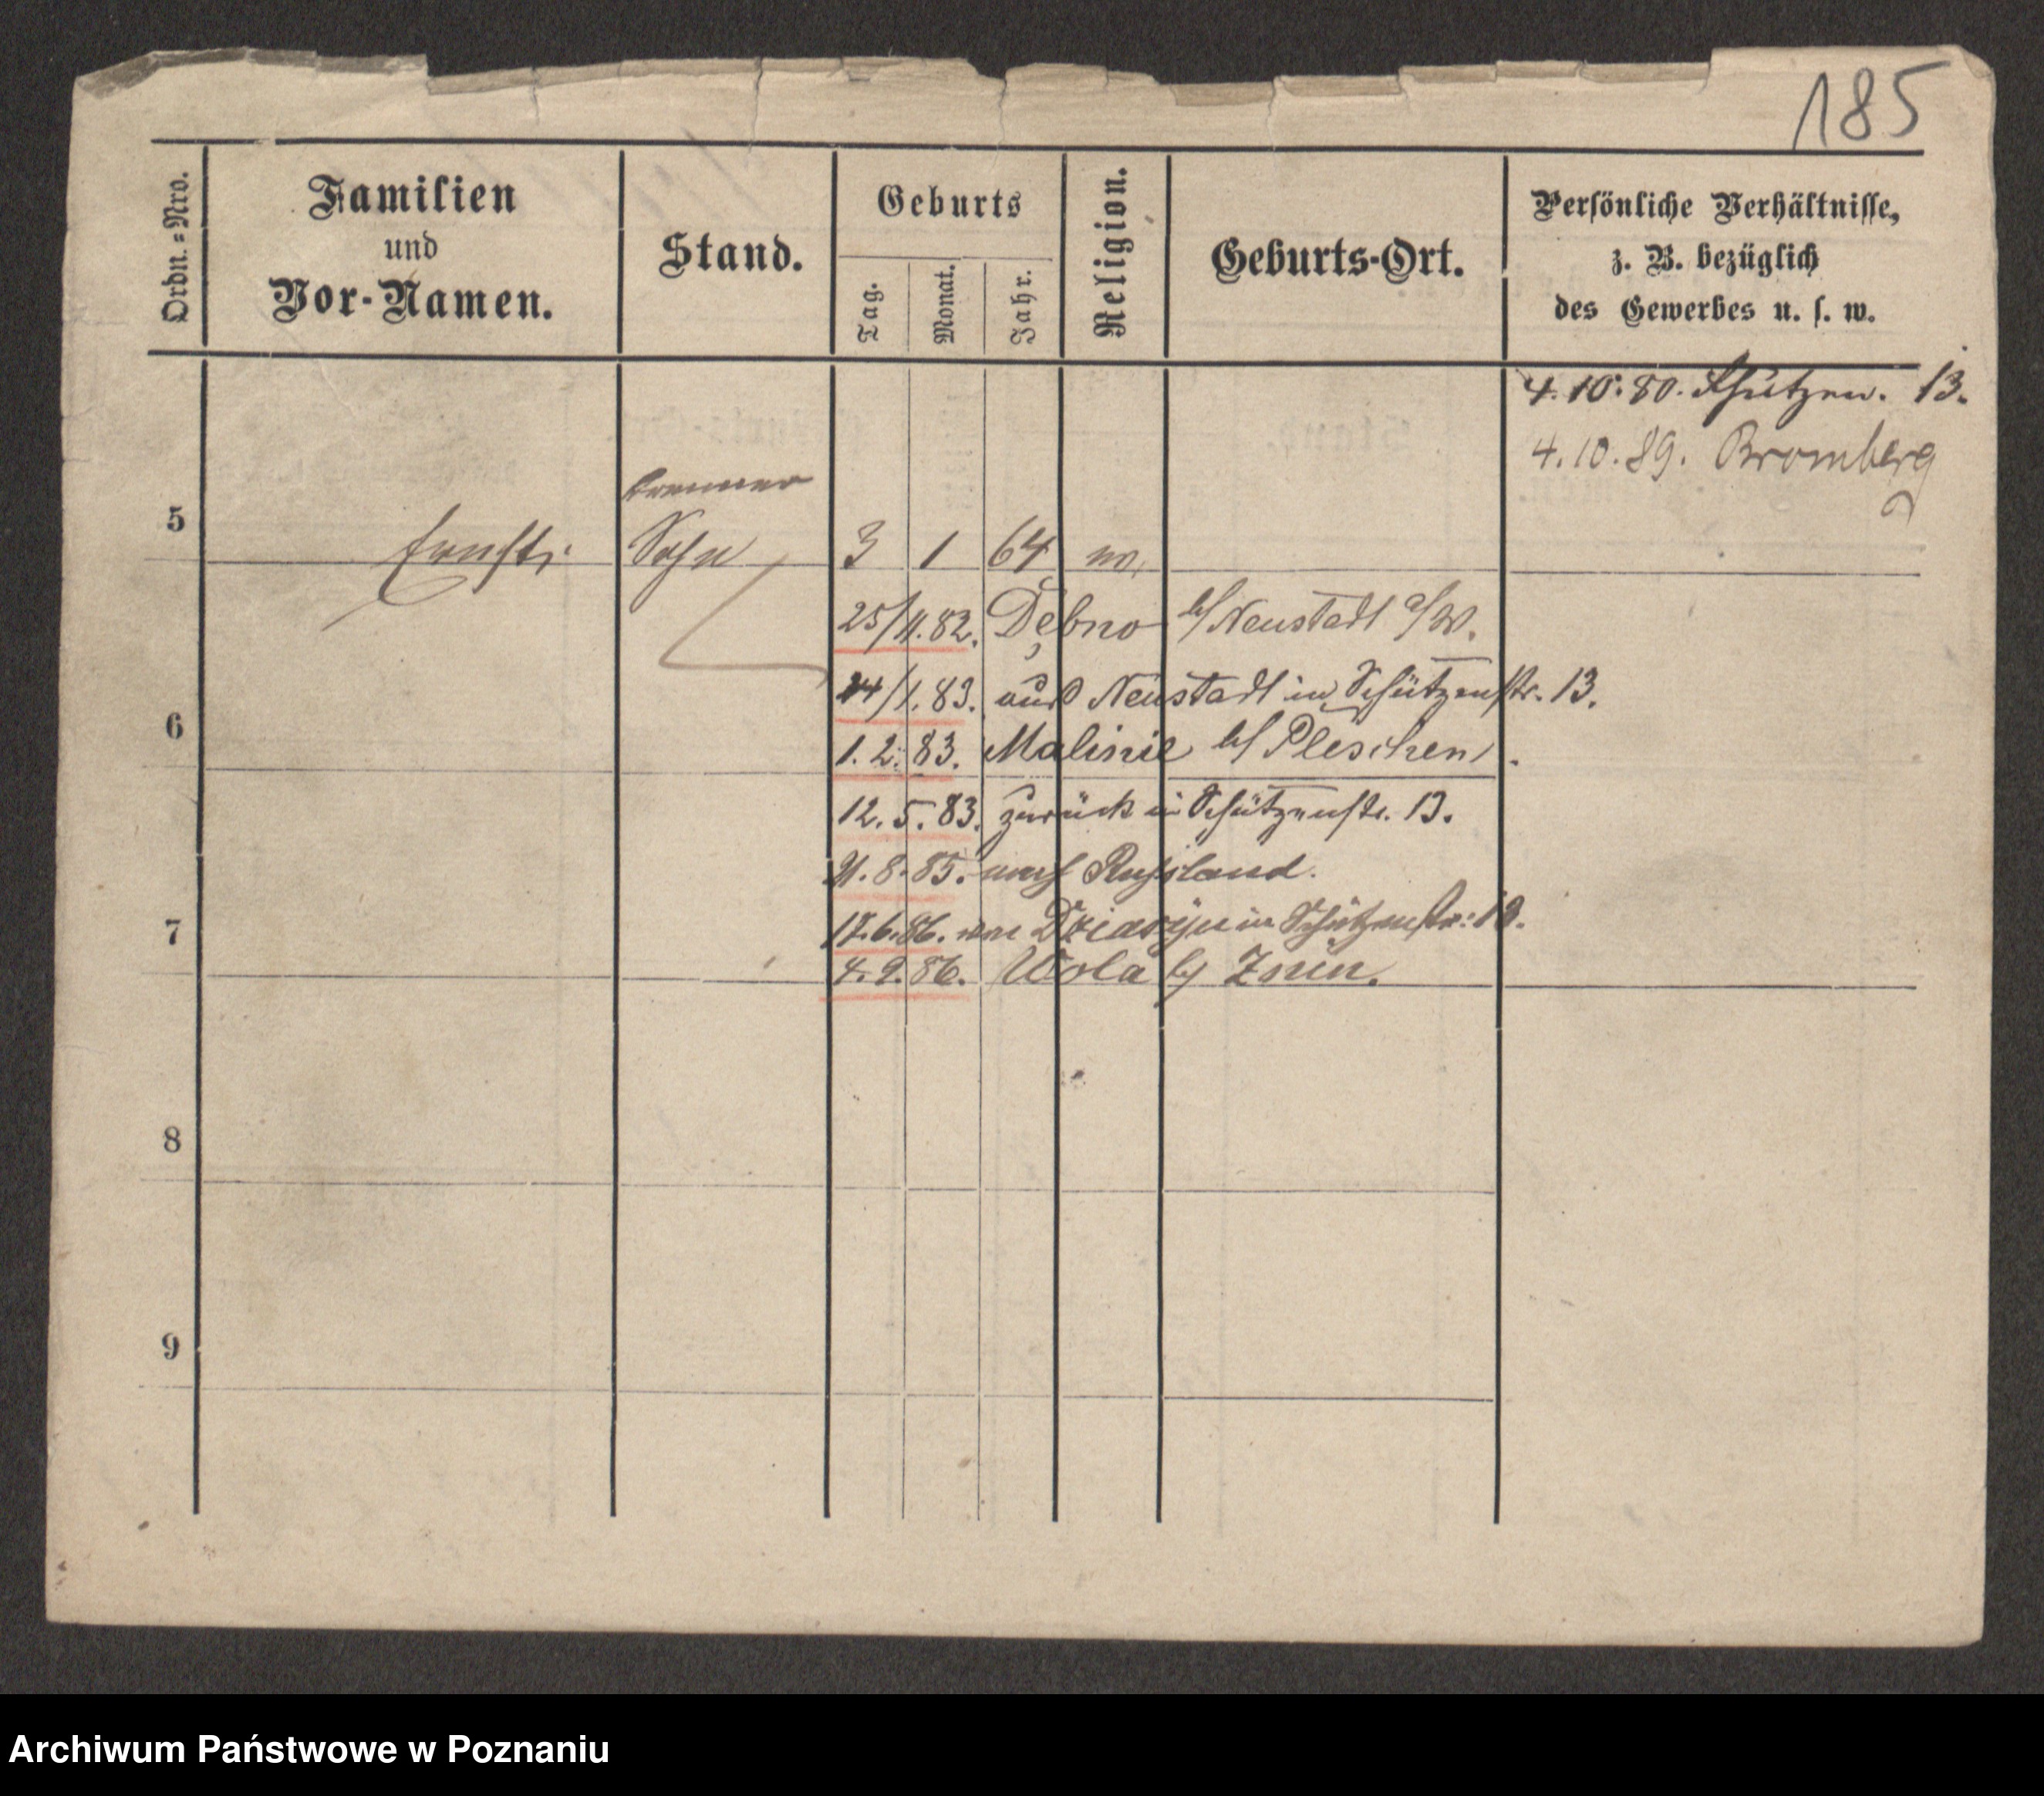 185
Ordn.=Nro.
Familien
und
Vor-Namen.
Stand.
Geburts
Tag.
Monat.
Jahr.
Religion.
Geburts-Ort.
Persönliche Verhältnisse,
z. B. bezüglich
des Gewerbes u. s. w.
4.10.80. Schützen. 13.
4.10.89. Bromberg
5
Sohn 3 1 64 m.
25/11.82. Dębno b/ Neustadt a/W.
24/1.83. aus Neustadt in Schützenstr. 13.
6
1.2.83. Malinie b/ Pleschen.
12.5.83. zurück in Schützenstr. 13.
21.8.85. nach Russland.
7
17.6.86. von in Schützenstr. 13.
4.9.86. Wola b/ Znin.
8
9
Archiwum Państwowe w Poznaniu